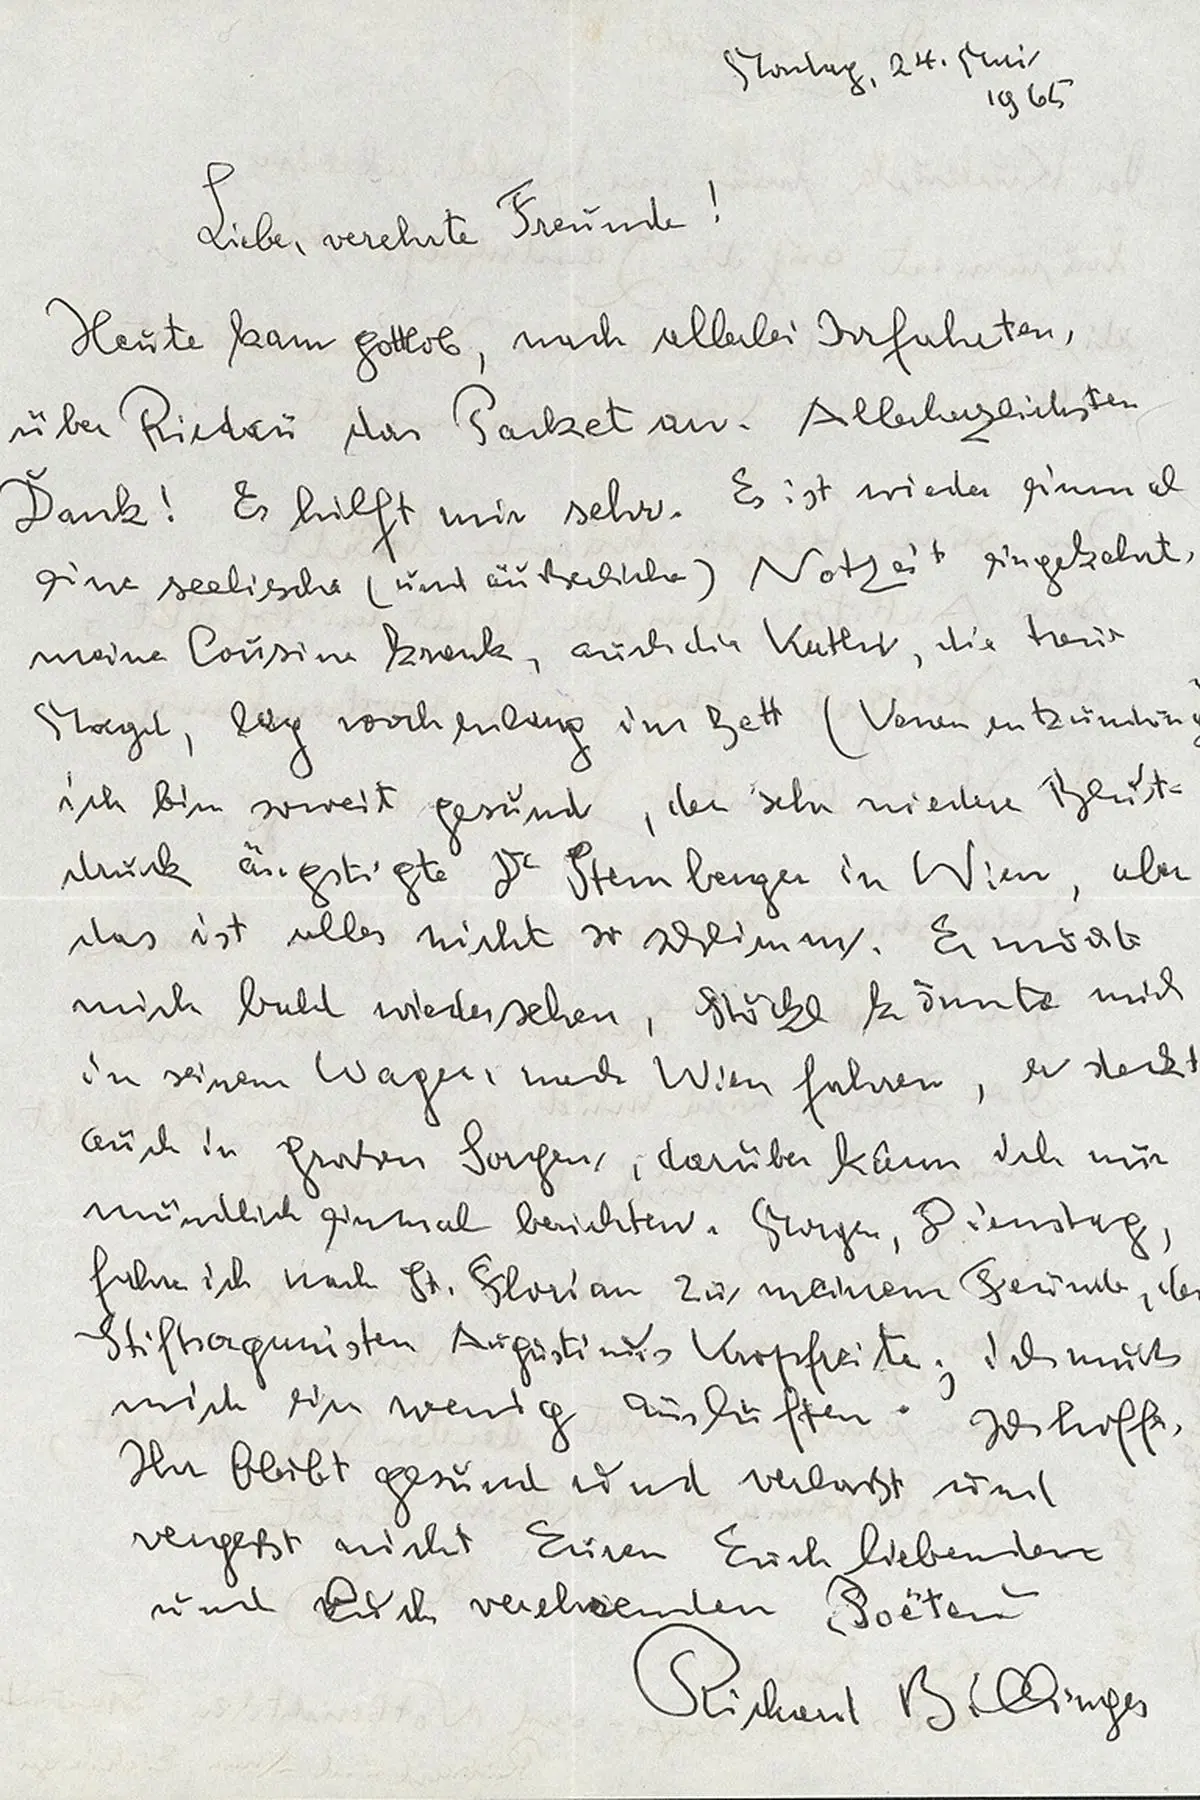 Montag, 24. Mai
1965
Liebe, verehrte Freunde!
Heute kam gottlob, nach allerlei Irrfahrten,
über Riedau das Packet an. Allerherzlichsten
Dank! Es hilft mir sehr. Es ist wieder einmal
eine seelische (und äußerliche) Notzeit eingekehrt,
meine Cousine krank, auch die Kathi, die treue
Magd, lag wochenlang im Bett (Venenentzündung
ich bin soweit gesund, der sehr niedere Blut-
druck ängstigte Dr Sternberger in Wien, aber
das ist alles nicht so schlimm. Er möchte
mich bald wiedersehen, Stöckl könnte mich
in seinem Wagen nach Wien fahren, er steckt
auch in großen Sorgen, darüber kann ich nur
mündlich einmal berichten. Morgen, Dienstag,
fahre ich nach St. Florian zu meinem Freunde, dem
Stiftsorganisten Augustinus Kropfreiter; ich muß
mich ein wenig auslüften. Ich hoffe,
Ihr bleibt gesund und verlaßt und
vergeßt nicht Euren Euch liebenden
und Euch verehrenden Poëten
Richard Billinger